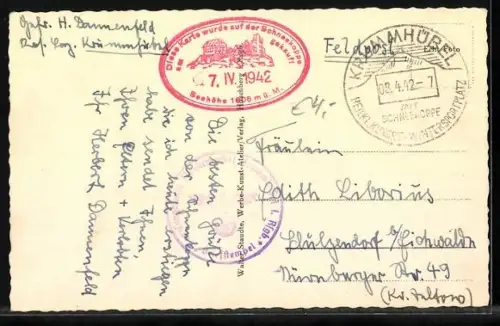 Gefr. H. Dannenfeld
Res. Laz. Krummhübel
Diese Karte wurde auf der Schneekoppe
gekauft
am
7. IV. 1942
Seehöhe 1605 m ü. M.
Feldpost
Echt Foto
KRUMMHÜBL
08.4.42-7
MIT
SCHNEEKOPPE
HERRLICHSTER WINTERSPORTPLATZ
Die besten Grüße
von der Schneekoppe
die ich heute erstiegen
habe sendet Ihnen,
Ihren Eltern +
Ihr Herbert Dannenfeld
Walter Staudte, Werbe-Kunst-Atelier/Verlag, Hirschberg
i. Rsgb.
stempel
Fräulein
Edith Liborius
Schulzendorf b/Eichwalde
Nürnberger Str. 49
(Kr. Teltow)